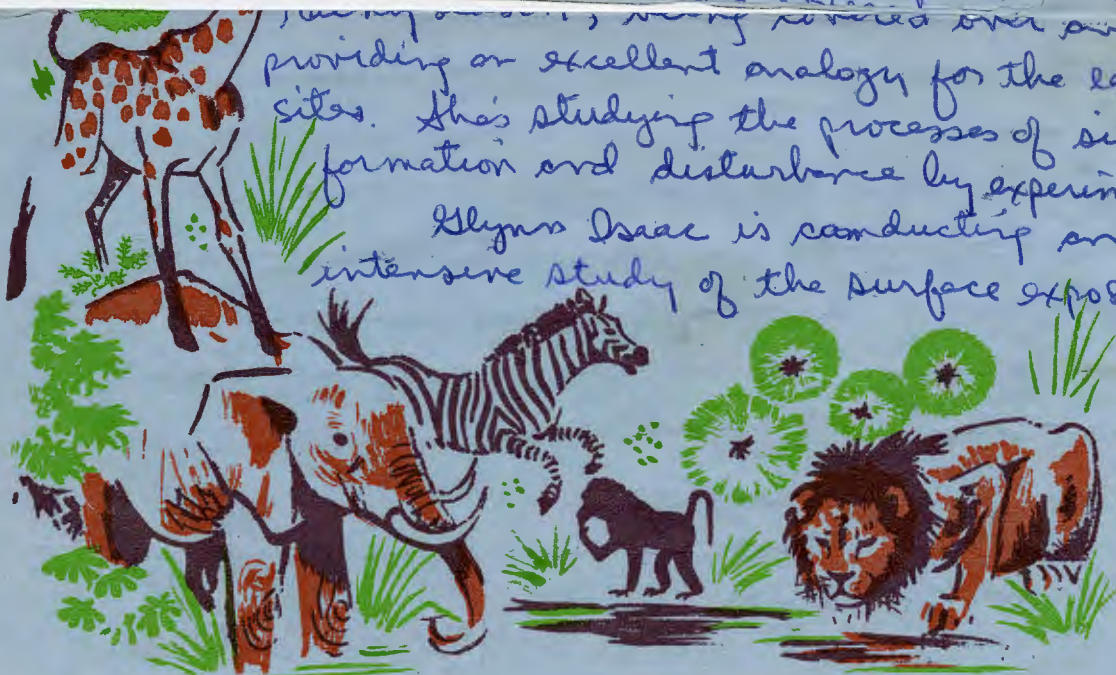 being covered over an
providing an excellent analogy for the ea
sites. She's studying the processes of si
formation and disturbance by experim
Glynn Isaac is conducting an
intensive study of the surface expos